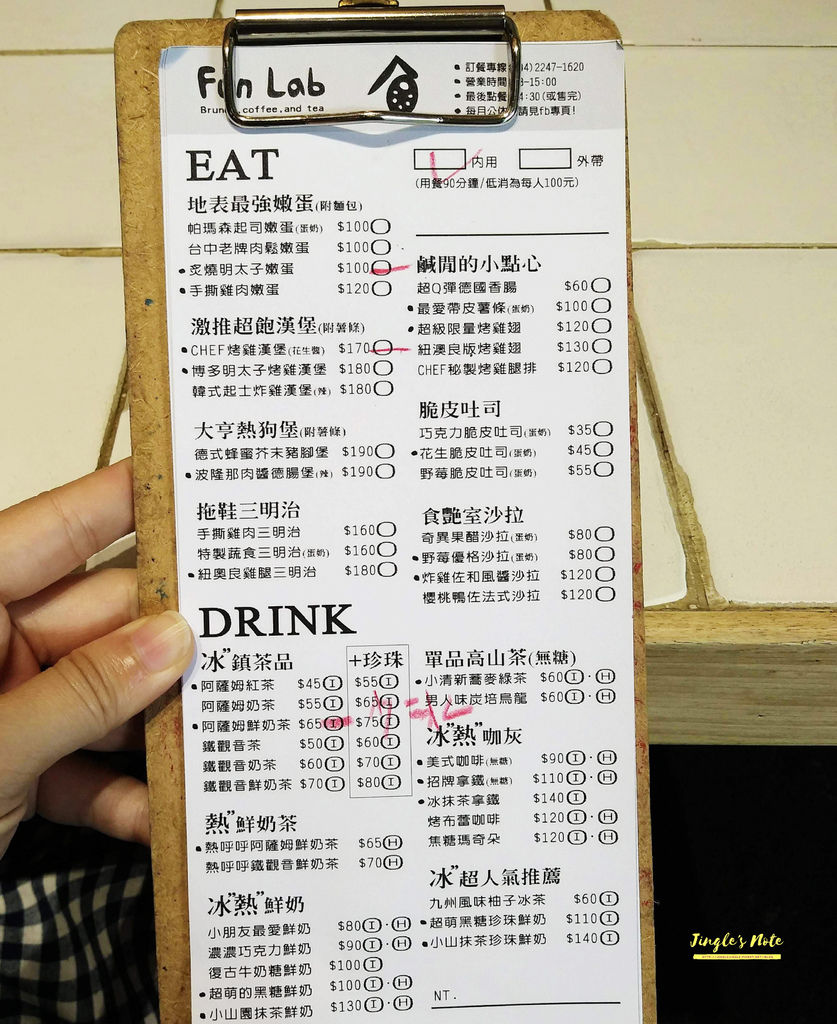 Fun Lab
Brunch,coffee,and tea
• 訂餐專線 04)2247-1620
• 營業時間 8-15:00
• 最後點餐 14:30(或售完)
• 每月公休 請見fb專頁!
EAT
內用 外帶
(用餐90分鐘/低消為每人100元)
地表最強嫩蛋(附麵包)
帕瑪森起司嫩蛋(蛋奶) $100
台中老牌肉鬆嫩蛋 $100
•炙燒明太子嫩蛋 $100
•手撕雞肉嫩蛋 $120
激推超飽漢堡(附薯條)
•CHEF烤雞漢堡(花生醬) $170
•博多明太子烤雞漢堡 $180
韓式起士炸雞漢堡(辣) $180
大亨熱狗堡(附薯條)
德式蜂蜜芥末豬腳堡 $190
•波隆那肉醬德腸堡(辣) $190
拖鞋三明治
手撕雞肉三明治 $160
特製蔬食三明治(蛋奶) $160
•紐奧良雞腿三明治 $180
鹹閒的小點心
超Q彈德國香腸 $60
•最愛帶皮薯條(蛋奶) $100
•超級限量烤雞翅 $120
紐澳良版烤雞翅 $130
CHEF秘製烤雞腿排 $120
脆皮吐司
巧克力脆皮吐司(蛋奶) $35
•花生脆皮吐司(蛋奶) $45
野莓脆皮吐司(蛋奶) $55
食艷室沙拉
奇異果醋沙拉(蛋奶) $80
•野莓優格沙拉(蛋奶) $80
•炸雞佐和風醬沙拉 $120
櫻桃鴨佐法式沙拉 $120
DRINK
冰"鎮茶品 +珍珠
•阿薩姆紅茶 $45 I $55 I
阿薩姆奶茶 $55 I $65 I
•阿薩姆鮮奶茶 $65 I $75 I
鐵觀音茶 $50 I $60 I
鐵觀音奶茶 $60 I $70 I
鐵觀音鮮奶茶 $70 I $80 I
熱"鮮奶茶
•熱呼呼阿薩姆鮮奶茶 $65 H
熱呼呼鐵觀音鮮奶茶 $70 H
冰"熱"鮮奶
小朋友最愛鮮奶 $80 I·H
濃濃巧克力鮮奶 $90 I·H
復古牛奶糖鮮奶 $100 I
•超萌的黑糖鮮奶 $100 I·H
•小山園抹茶鮮奶 $130 I·H
單品高山茶(無糖)
•小清新蕎麥綠茶 $60 I·H
男人味炭培烏龍 $60 I·H
冰"熱"咖灰
•美式咖啡(無糖) $90 I·H
•招牌拿鐵(無糖) $110 I·H
•冰抹茶拿鐵 $140 I
烤布蕾咖啡 $120 I·H
焦糖瑪奇朵 $120 I·H
冰"超人氣推薦
九州風味柚子冰茶 $60 I
•超萌黑糖珍珠鮮奶 $110 I
•小山抹茶珍珠鮮奶 $140 I
NT.
Jingle's Note